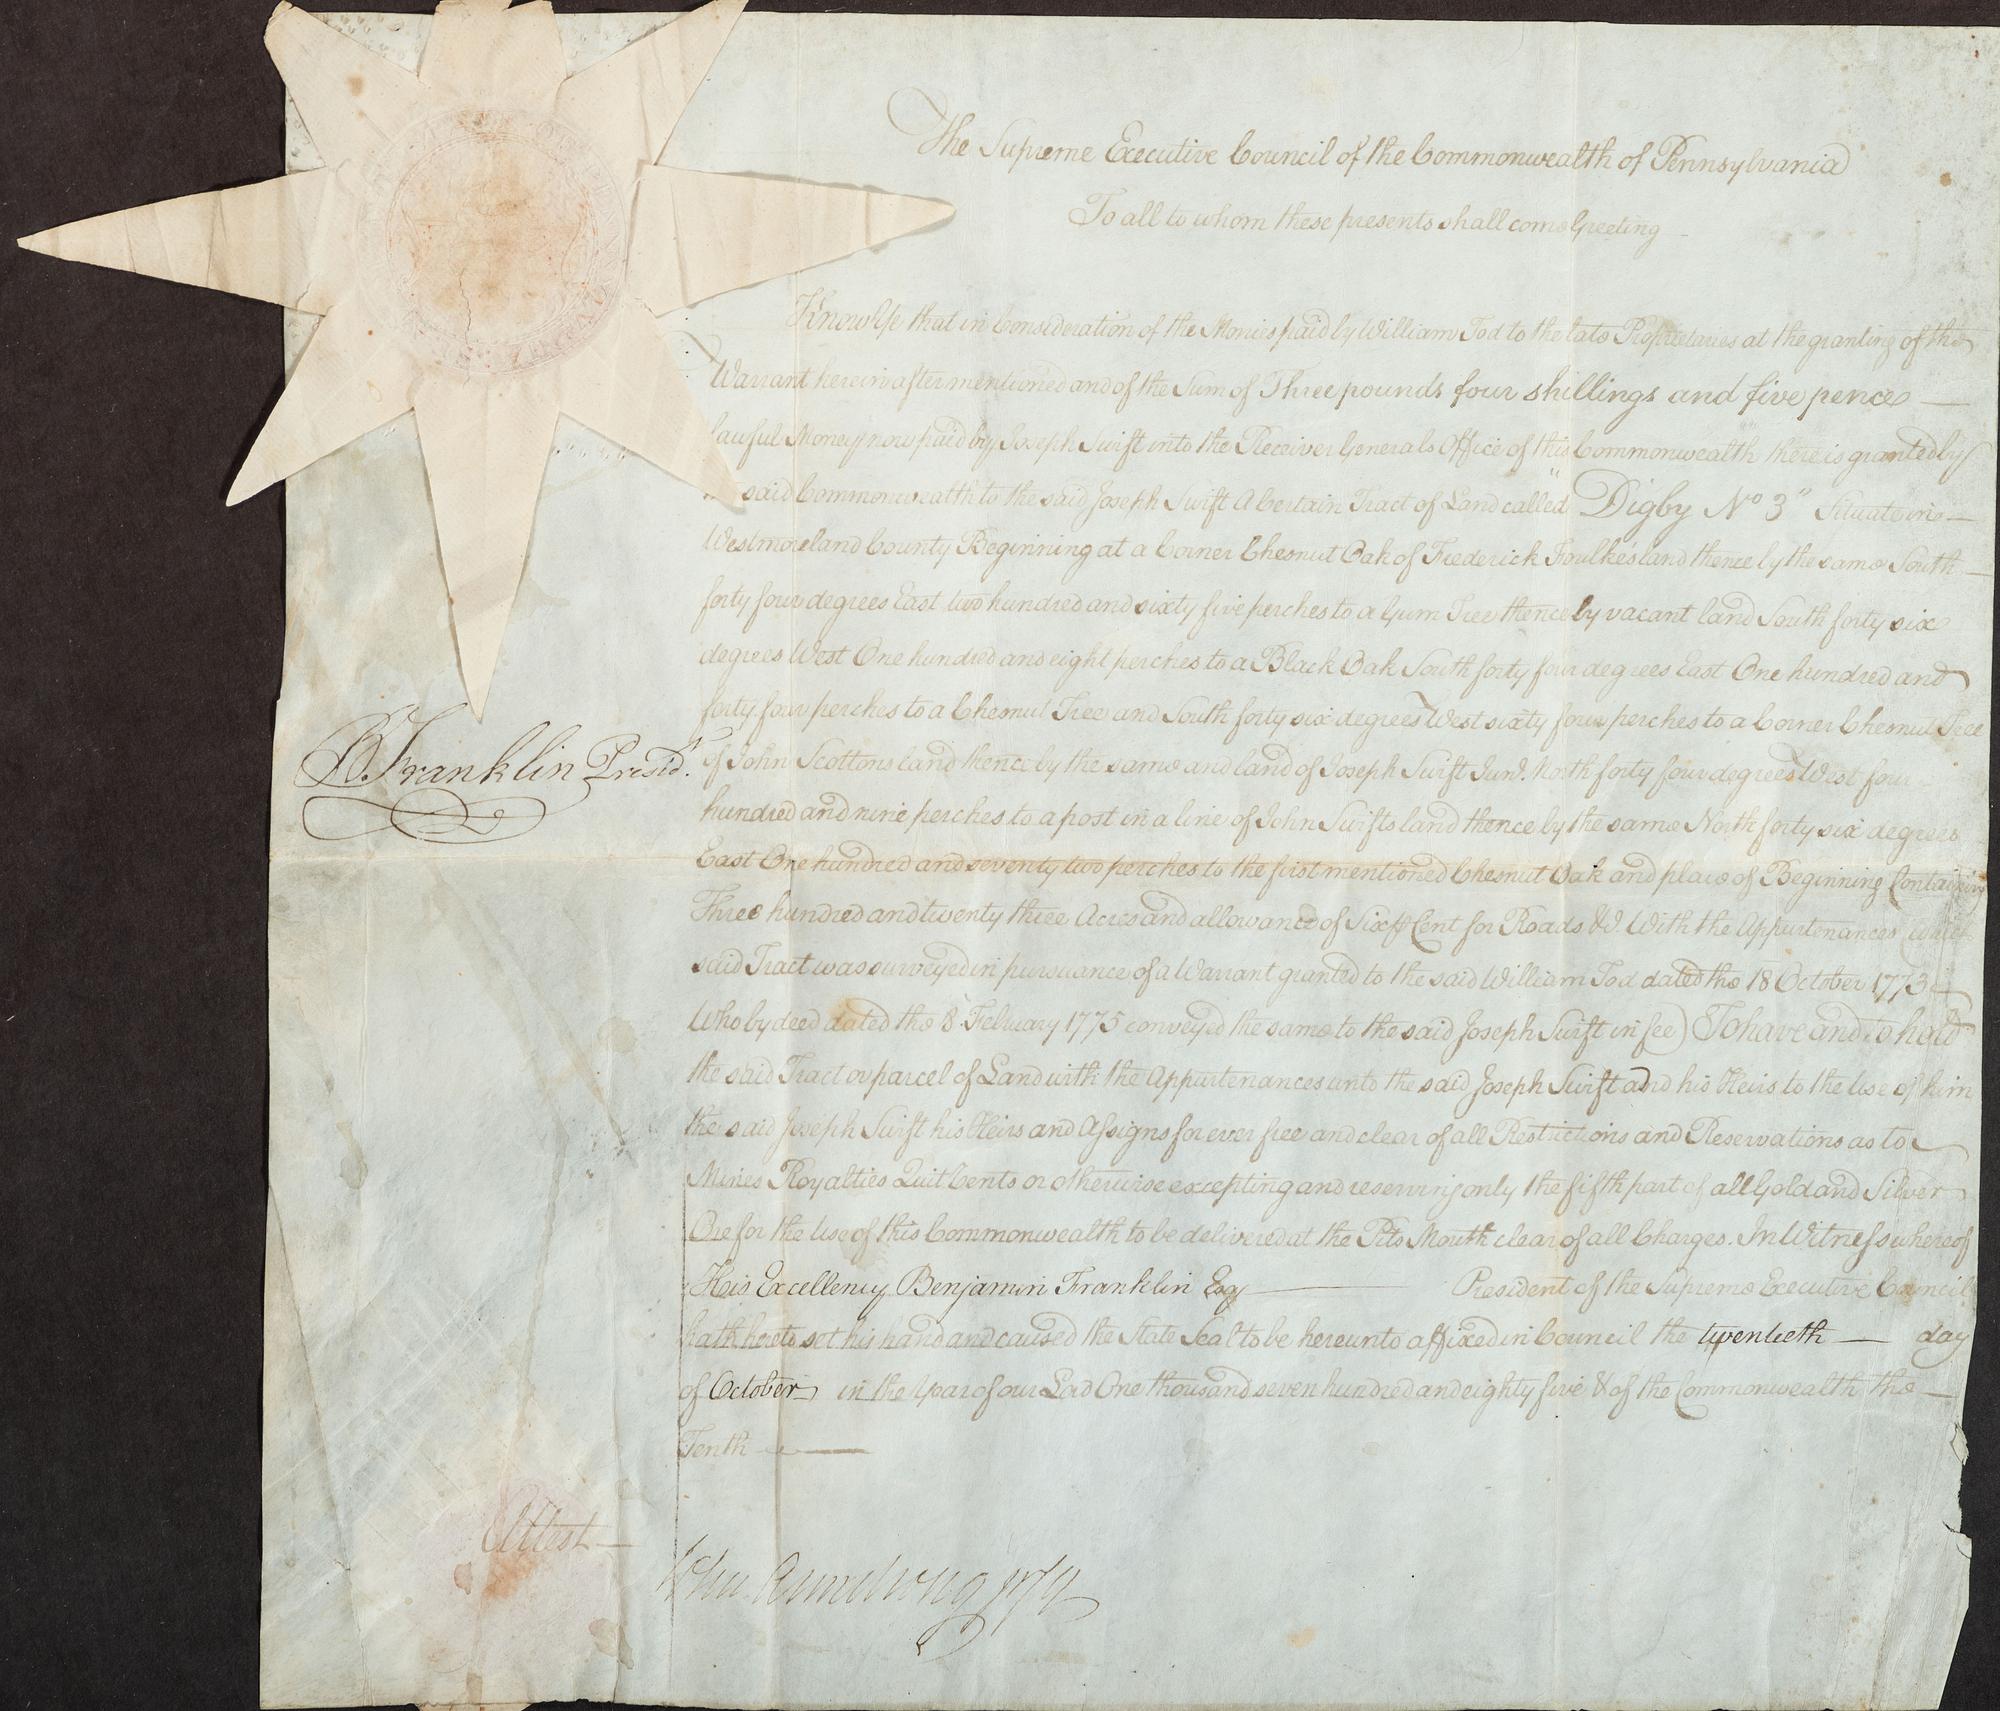 The Supreme Executive Council of the Commonwealth of Pennsylvania
To all to whom these presents shall come Greeting
Know Ye that in Consideration of the Monies paid by William Tod to the late Proprietaries at the granting of the
Warrant herein after mentioned and of the Sum of Three pounds four shillings and five pence
lawful Money now paid by Joseph Swift into the Receiver Generals Office of this Commonwealth there is granted by
said Commonwealth to the said Joseph Swift A Certain Tract of Land called "Digby No 3" Situate in
Westmoreland County Beginning at a Corner Chesnut Oak of Frederick Foulke's land thence by the same South
forty four degrees East two hundred and sixty five perches to a Gum Tree thence by vacant land South forty six
degrees West One hundred and eight perches to a Black Oak South forty four degrees East One hundred and
forty four perches to a Chesnut Tree and South forty six degrees West sixty four perches to a Corner Chesnut Tree
of John Scottons land thence by the same and land of Joseph Swift Junr. North forty four degrees West four
hundred and nine perches to a post in a line of John Swifts land thence by the same North forty six degrees
East One hundred and seventy two perches to the first mentioned Chesnut Oak and place of Beginning Containing
Three hundred and twenty three Acres and allowance of Six ⅌ Cent for Roads &c. With the Appurtenances (which
said Tract was surveyed in pursuance of a Warrant granted to the said William Tod dated the 18 October 1773
Who by deed dated the 8 February 1775 conveyed the same to the said Joseph Swift in fee) To have and to hold
the said Tract or parcel of Land with the Appurtenances unto the said Joseph Swift and his Heirs to the Use of him
the said Joseph Swift his Heirs and Assigns for ever free and clear of all Restrictions and Reservations as to
Mines Royalties Quit Rents or otherwise excepting and reserving only the fifth part of all Gold and Silver
Ore for the Use of this Commonwealth to be delivered at the Pits Mouth clear of all Charges. In Witness whereof
His Excellency Benjamin Franklin Esqr President of the Supreme Executive Council
hath hereto set his hand and caused the State Seal to be hereunto affixed in Council the twentieth day
of October in the Year of our Lord One thousand seven hundred and eighty five & of the Commonwealth the
Tenth
B. Franklin Presidt.
Attest
John Armstrong